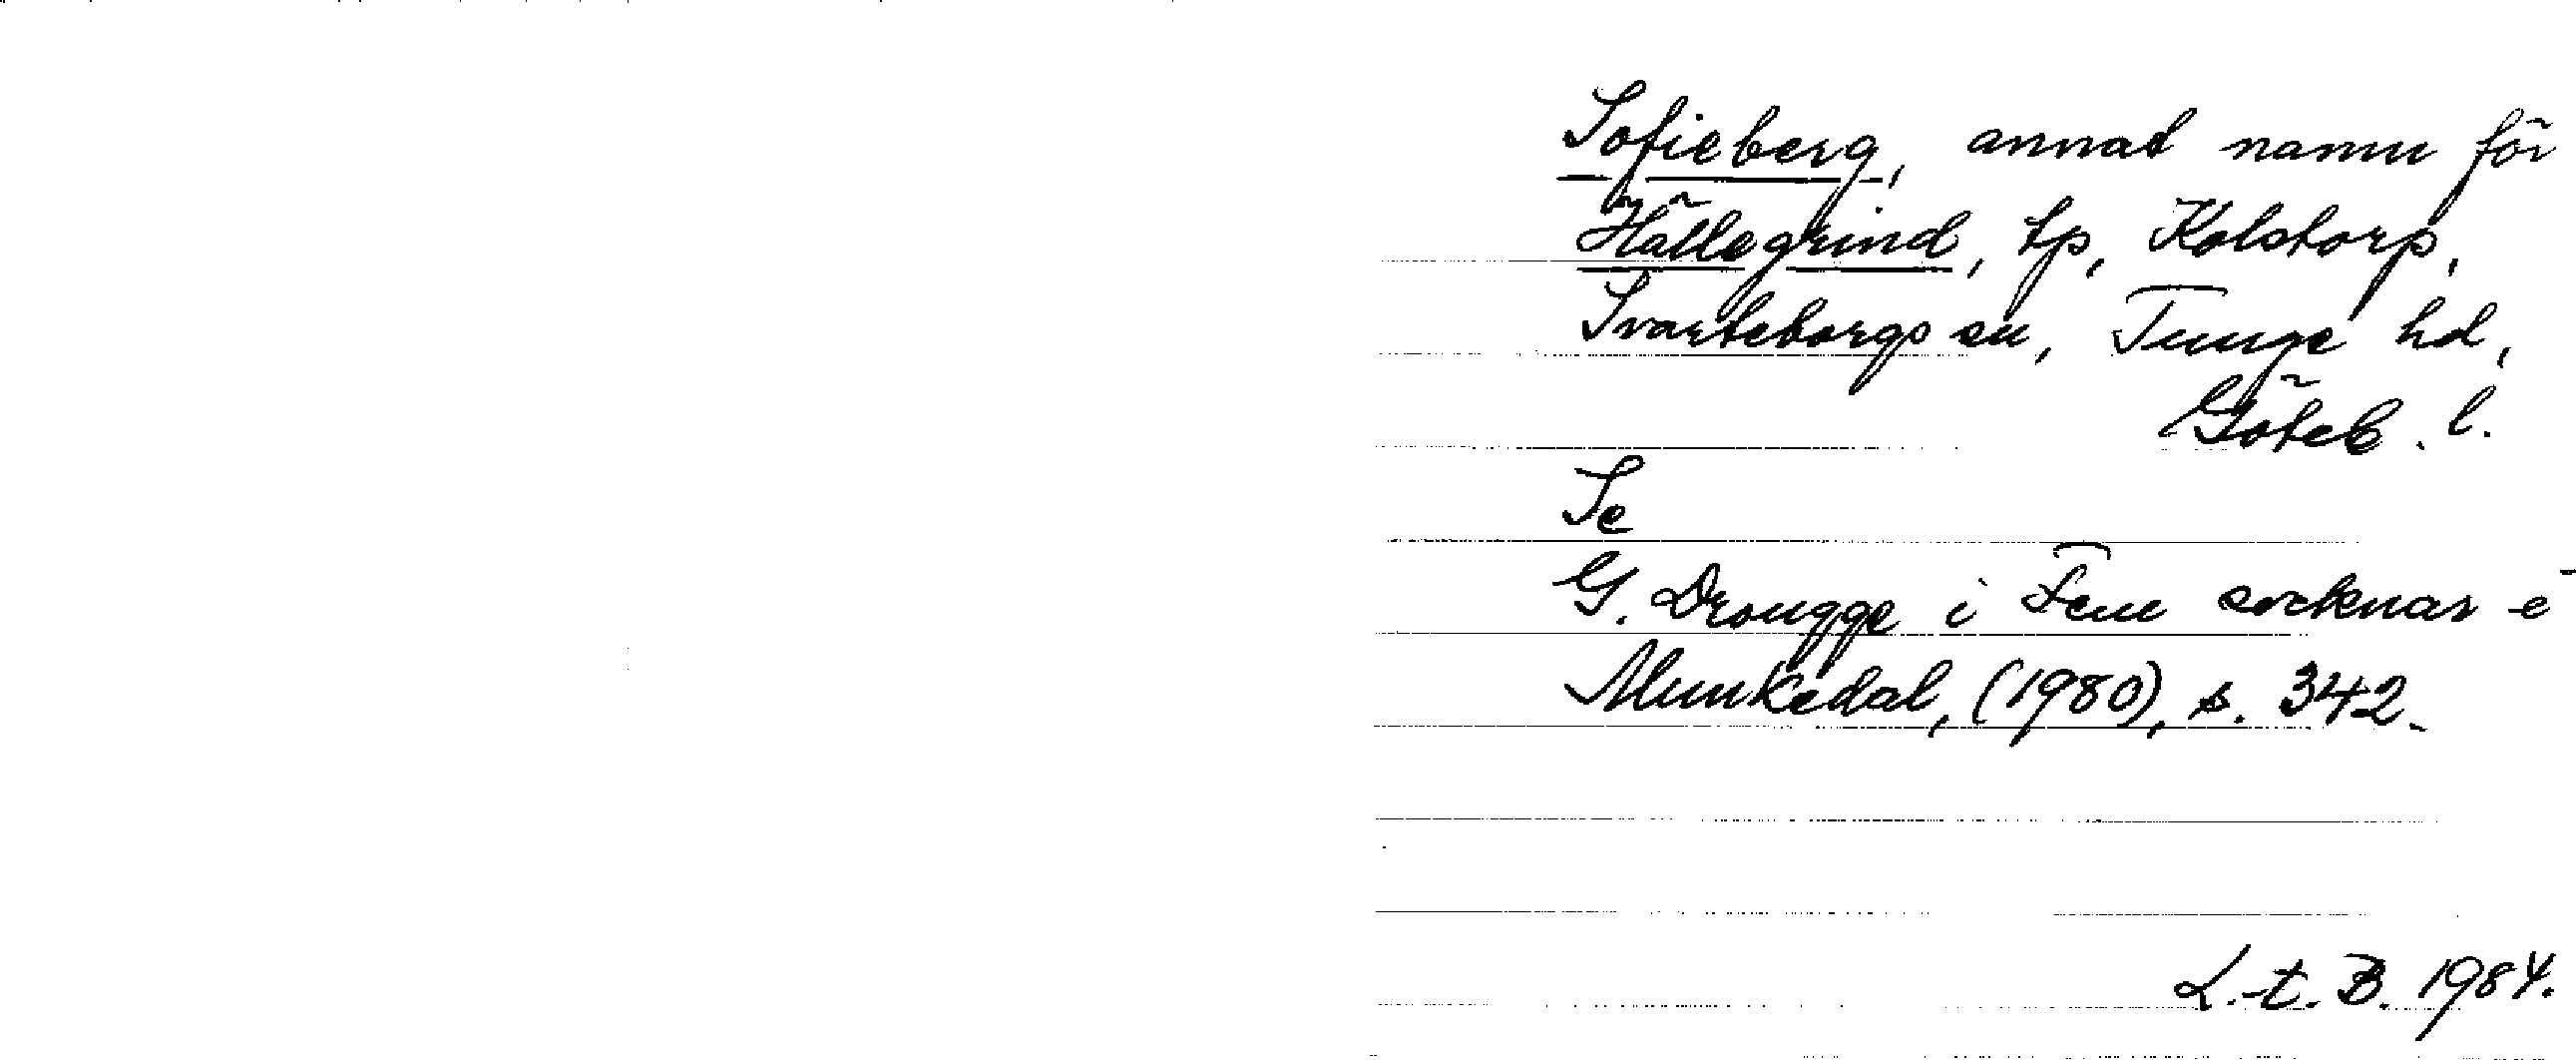 Sofieberg, annat namn för
Hällegrind, tp, Kolstorp,
Svarteborgs sn, Tunge hd,
Göteb. l.
Se
G. Drougge i Fem socknar e
Munkedal, (1980), s. 342.
L.t.B. 1984.